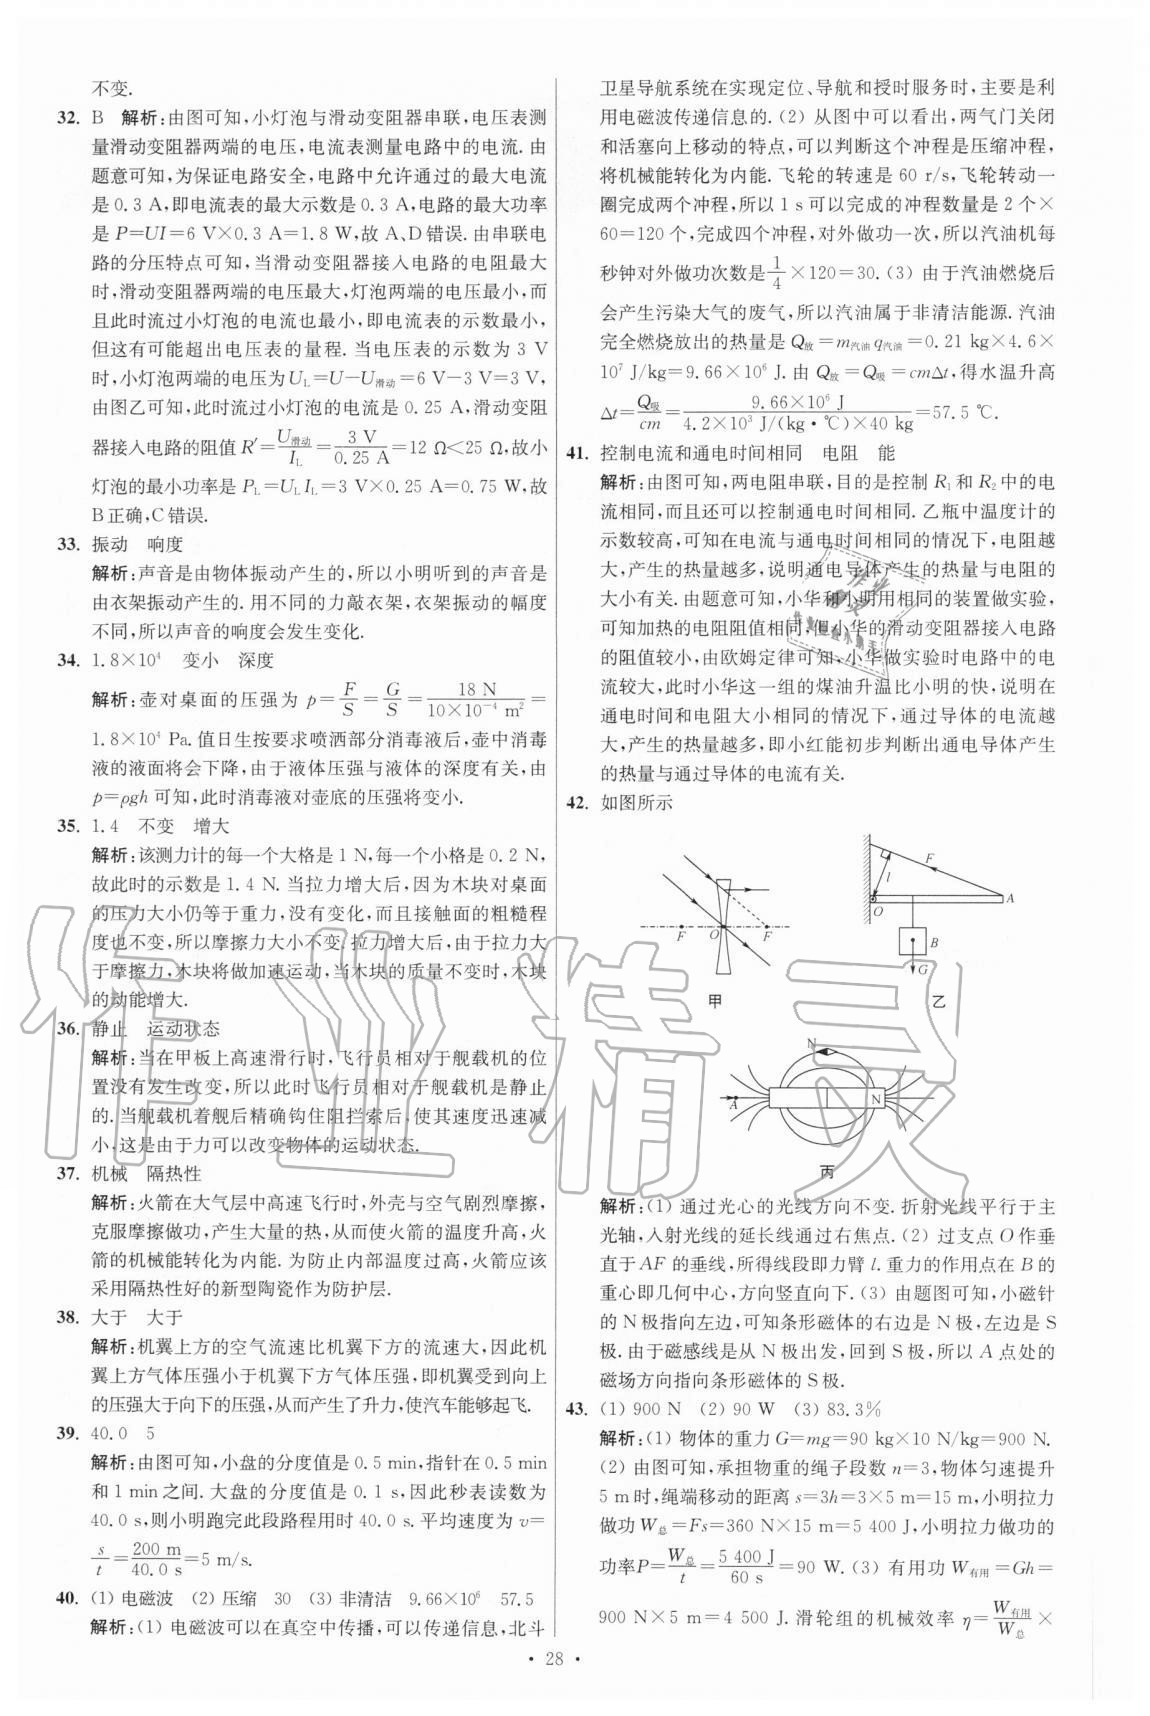 不变.
32. B 解析:由图可知,小灯泡与滑动变阻器串联,电压表测
量滑动变阻器两端的电压,电流表测量电路中的电流. 由
题意可知,为保证电路安全,电路中允许通过的最大电流
是 0.3 A,即电流表的最大示数是 0.3 A,电路的最大功率
是 P=UI=6 V×0.3 A=1.8 W,故 A、D 错误. 由串联电
路的分压特点可知,当滑动变阻器接入电路的电阻最大
时,滑动变阻器两端的电压最大,灯泡两端的电压最小,而
且此时流过小灯泡的电流也最小,即电流表的示数最小,
但这有可能超出电压表的量程. 当电压表的示数为 3 V
时,小灯泡两端的电压为 U_L=U−U_滑动=6 V−3 V=3 V,
由图乙可知,此时流过小灯泡的电流是 0.25 A,滑动变阻
器接入电路的阻值 R′=U_滑动/I_L=3 V/0.25 A=12 Ω<25 Ω,故小
灯泡的最小功率是 P_L=U_L I_L=3 V×0.25 A=0.75 W,故
B 正确,C 错误.
33. 振动 响度
解析:声音是由物体振动产生的,所以小明听到的声音是
由衣架振动产生的. 用不同的力敲衣架,衣架振动的幅度
不同,所以声音的响度会发生变化.
34. 1.8×10⁴ 变小 深度
解析:壶对桌面的压强为 p=F/S=G/S=18 N/(10×10⁻⁴ m²)=
1.8×10⁴ Pa. 值日生按要求喷洒部分消毒液后,壶中消毒
液的液面将会下降,由于液体压强与液体的深度有关,由
p=ρgh 可知,此时消毒液对壶底的压强将变小.
35. 1.4 不变 增大
解析:该测力计的每一个大格是 1 N,每一个小格是 0.2 N,
故此时的示数是 1.4 N. 当拉力增大后,因为木块对桌面
的压力大小仍等于重力,没有变化,而且接触面的粗糙程
度也不变,所以摩擦力大小不变. 拉力增大后,由于拉力大
于摩擦力,木块将做加速运动,当木块的质量不变时,木块
的动能增大.
36. 静止 运动状态
解析:当在甲板上高速滑行时,飞行员相对于舰载机的位
置没有发生改变,所以此时飞行员相对于舰载机是静止
的. 当舰载机着舰后精确钩住阻拦索后,使其速度迅速减
小,这是由于力可以改变物体的运动状态.
37. 机械 隔热性
解析:火箭在大气层中高速飞行时,外壳与空气剧烈摩擦,
克服摩擦做功,产生大量的热,从而使火箭的温度升高,火
箭的机械能转化为内能. 为防止内部温度过高,火箭应该
采用隔热性好的新型陶瓷作为防护层.
38. 大于 大于
解析:机翼上方的空气流速比机翼下方的流速大,因此机
翼上方气体压强小于机翼下方气体压强,即机翼受到向上
的压强大于向下的压强,从而产生了升力,使汽车能够起飞.
39. 40.0 5
解析:由图可知,小盘的分度值是 0.5 min,指针在 0.5 min
和 1 min 之间. 大盘的分度值是 0.1 s,因此秒表读数为
40.0 s,则小明跑完此段路程用时 40.0 s. 平均速度为 v=
s/t=200 m/40.0 s=5 m/s.
40. (1) 电磁波 (2) 压缩 30 (3) 非清洁 9.66×10⁶ 57.5
解析:(1) 电磁波可以在真空中传播,可以传递信息,北斗
卫星导航系统在实现定位、导航和授时服务时,主要是利
用电磁波传递信息的. (2) 从图中可以看出,两气门关闭
和活塞向上移动的特点,可以判断这个冲程是压缩冲程,
将机械能转化为内能. 飞轮的转速是 60 r/s,飞轮转动一
圈完成两个冲程,所以 1 s 可以完成的冲程数量是 2 个×
60=120 个,完成四个冲程,对外做功一次,所以汽油机每
秒钟对外做功次数是1/4×120=30. (3) 由于汽油燃烧后
会产生污染大气的废气,所以汽油属于非清洁能源. 汽油
完全燃烧放出的热量是 Q_放=m_汽油 q_汽油=0.21 kg×4.6×
10⁷ J/kg=9.66×10⁶ J. 由 Q_放=Q_吸=cmΔt,得水温升高
Δt=Q_吸/cm=9.66×10⁶ J/(4.2×10³ J/(kg·℃)×40 kg)=57.5 ℃.
41. 控制电流和通电时间相同 电阻 能
解析:由图可知,两电阻串联,目的是控制 R₁ 和 R₂ 中的电
流相同,而且还可以控制通电时间相同. 乙瓶中温度计的
示数较高,可知在电流与通电时间相同的情况下,电阻越
大,产生的热量越多,说明通电导体产生的热量与电阻的
大小有关. 由题意可知,小华和小明用相同的装置做实验,
可知加热的电阻阻值相同,但小华的滑动变阻器接入电路
的阻值较小,由欧姆定律可知,小华做实验时电路中的电
流较大,此时小华这一组的煤油升温比小明的快,说明在
通电时间和电阻大小相同的情况下,通过导体的电流越
大,产生的热量越多,即小红能初步判断出通电导体产生
的热量与通过导体的电流有关.
42. 如图所示
F O F
甲
l F O A B G
乙
N A N
丙
解析:(1) 通过光心的光线方向不变. 折射光线平行于主
光轴,入射光线的延长线通过右焦点. (2) 过支点 O 作垂
直于 AF 的垂线,所得线段即力臂 l. 重力的作用点在 B 的
重心即几何中心,方向竖直向下. (3) 由题图可知,小磁针
的 N 极指向左边,可知条形磁体的右边是 N 极,左边是 S
极. 由于磁感线是从 N 极出发,回到 S 极,所以 A 点处的
磁场方向指向条形磁体的 S 极.
43. (1) 900 N (2) 90 W (3) 83.3%
解析:(1) 物体的重力 G=mg=90 kg×10 N/kg=900 N.
(2) 由图可知,承担物重的绳子段数 n=3,物体匀速提升
5 m 时,绳端移动的距离 s=3h=3×5 m=15 m,小明拉力
做功 W_总=Fs=360 N×15 m=5 400 J,小明拉力做功的
功率P=W_总/t=5 400 J/60 s=90 W. (3) 有用功 W_有用=Gh=
900 N×5 m=4 500 J. 滑轮组的机械效率 η=W_有用/W_总×
• 28 •
作业精灵